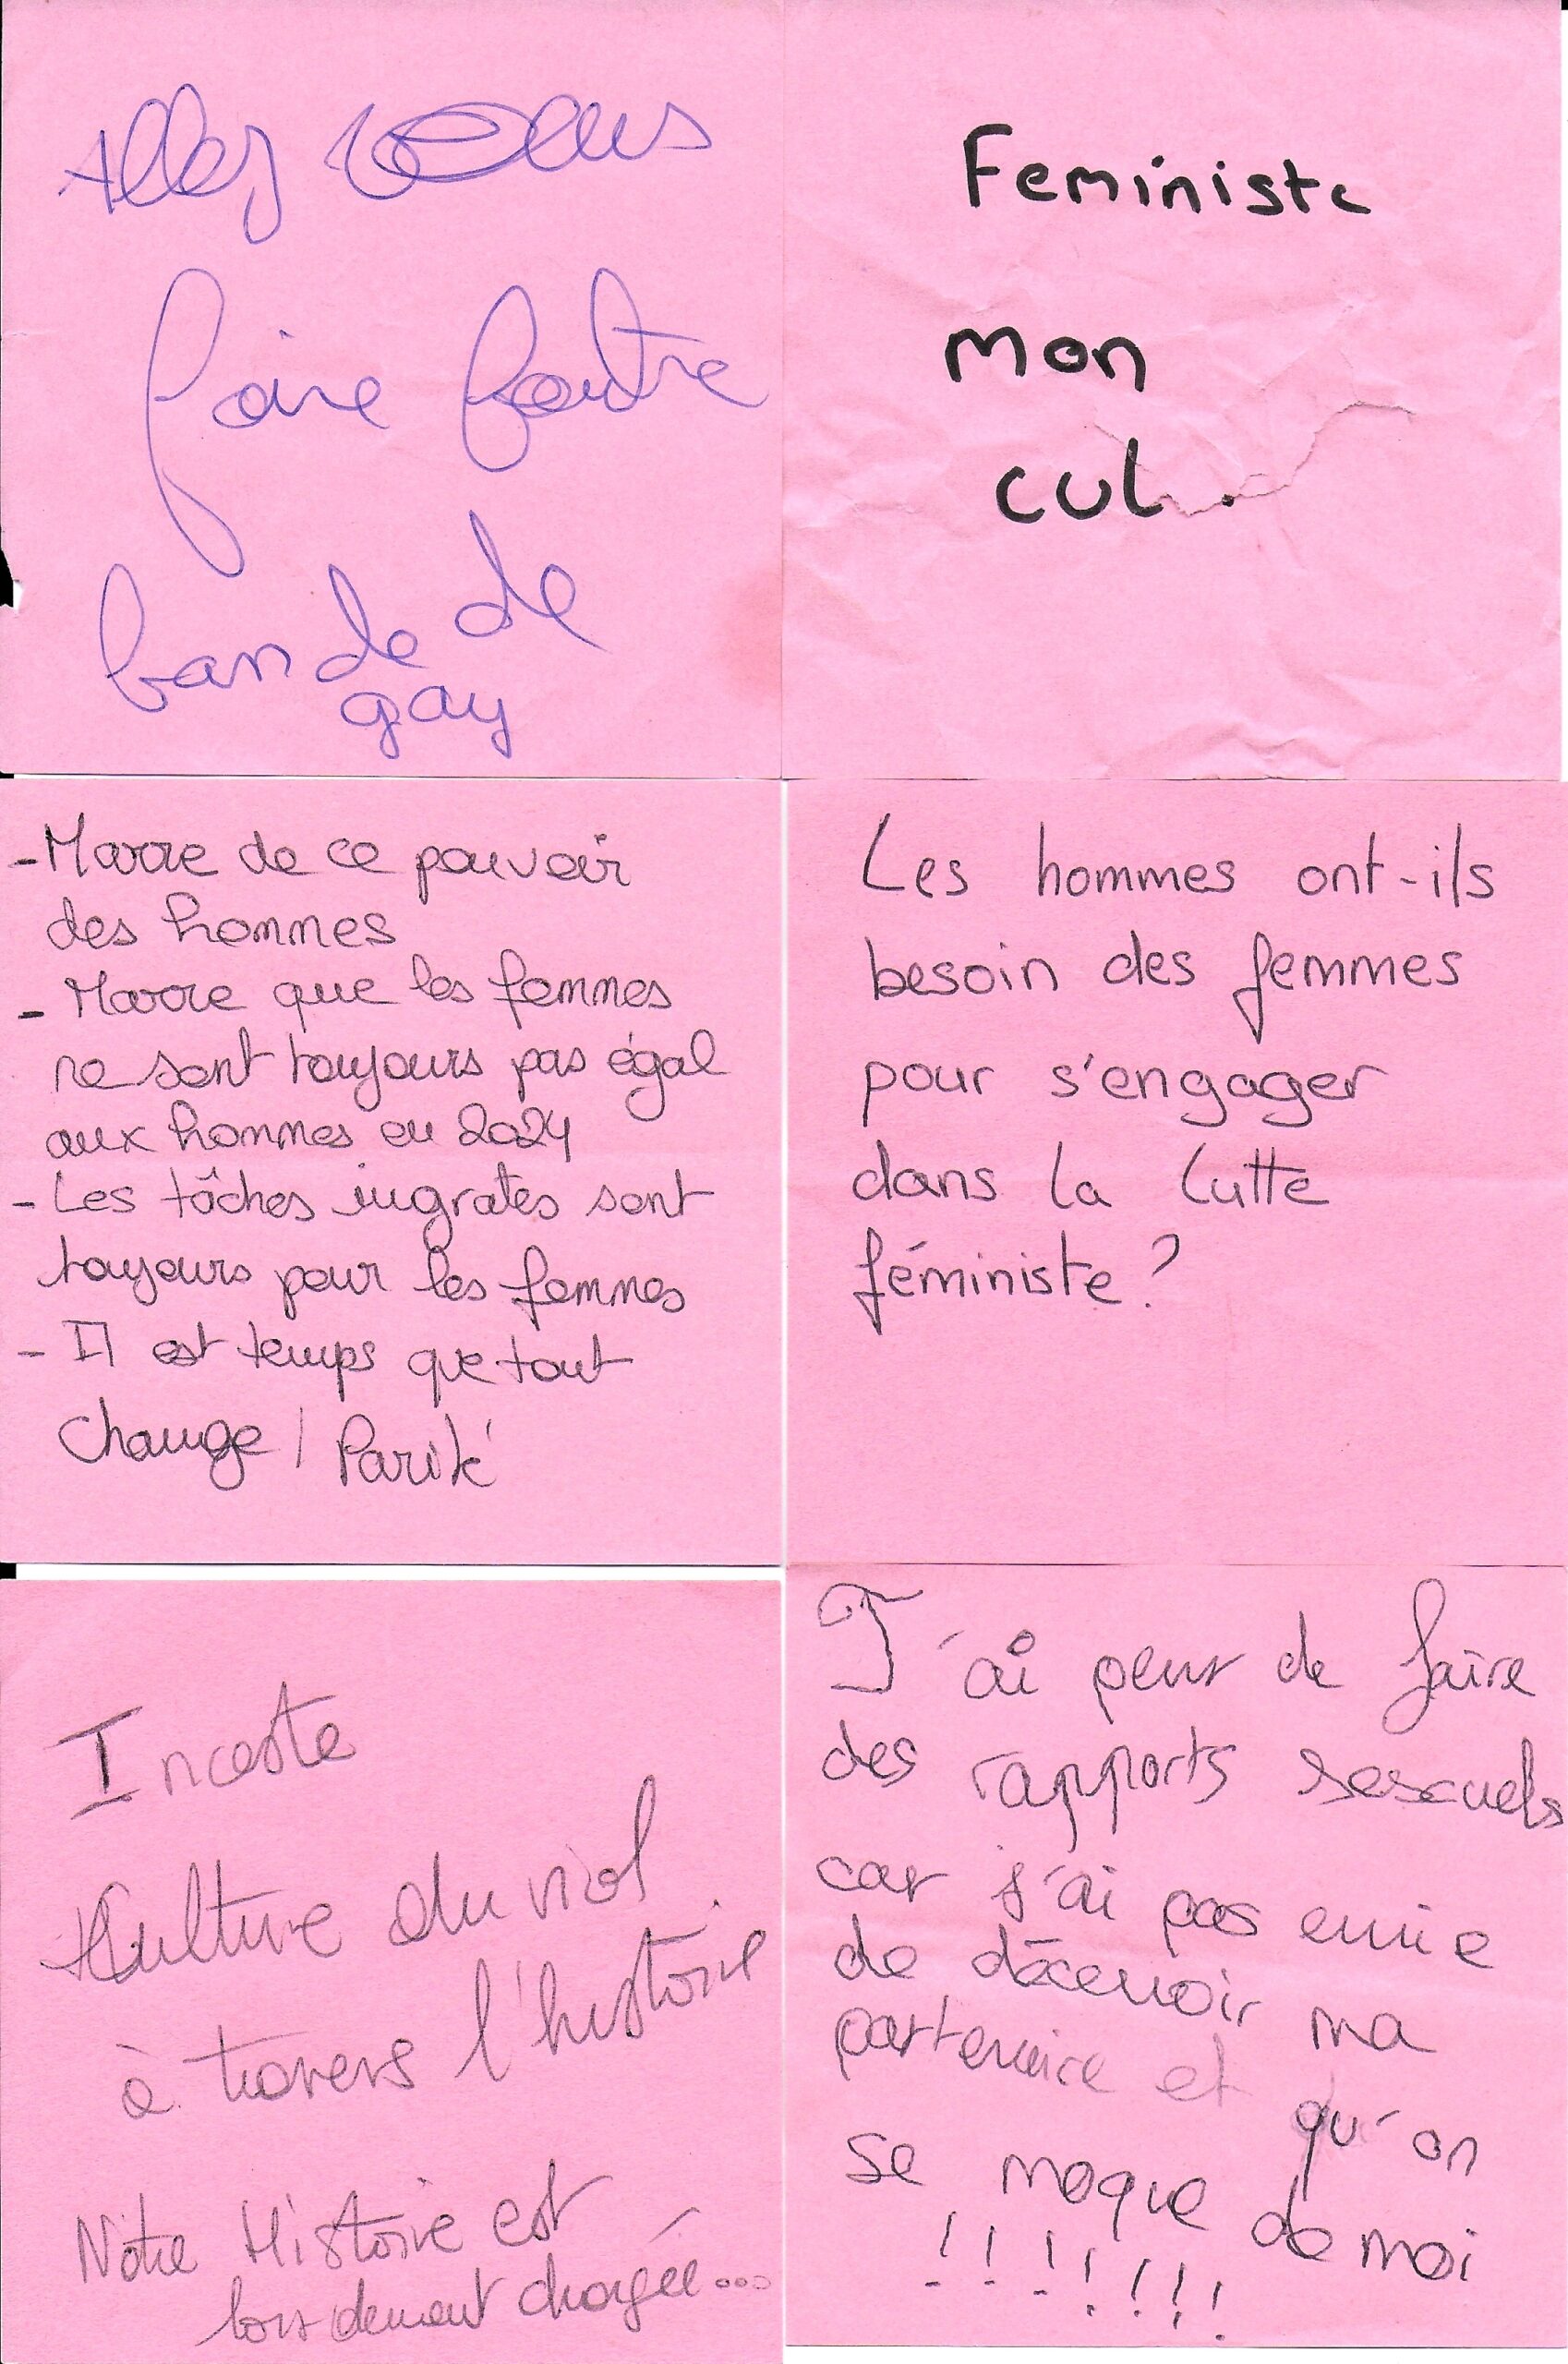 Allez vous
faire foutre
bande de
gay
Feministe
mon
cul.
- Marre de ce pouvoir
des hommes
- Marre que les femmes
ne sont toujours pas égal
aux hommes en 2024
- Les tâches ingrates sont
toujours pour les femmes
- Il est temps que tout
change ! Parité
Les hommes ont-ils
besoin des femmes
pour s'engager
dans la lutte
féministe ?
Inceste
Kulture du viol
à travers l'histoire
Notre Histoire est
lourdement chargée...
J'ai peur de faire
des rapports sexuels
car j'ai pas envie
de décevoir ma
partenaire et qu'on
se moque de moi
!!!!!!!